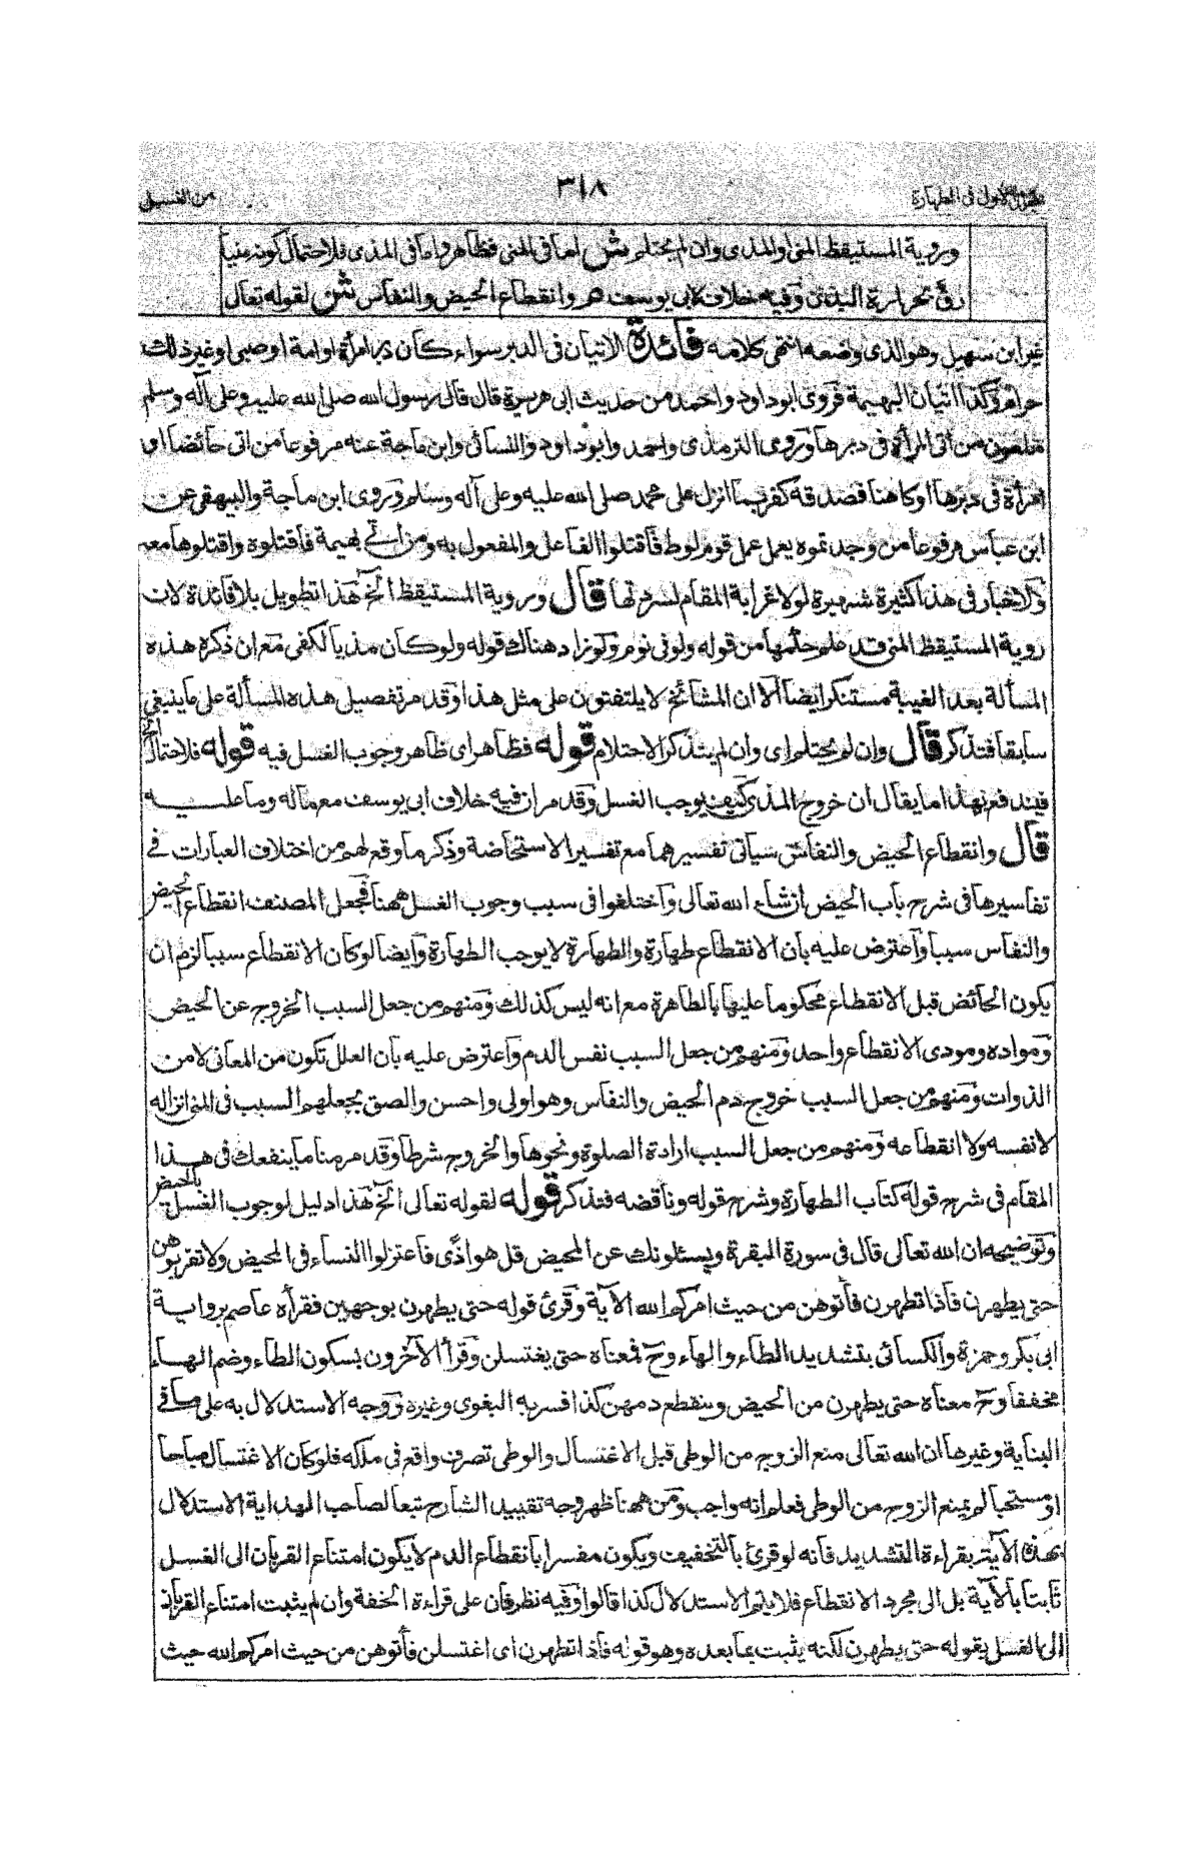 الاول فى الطهارة
٣١٨
من الغسل
وروية المستيقظ المنى والمذى وان لم يحتلم ش اما فى المنى فظاهر واما فى المذى فلاحتمال كونه منيا
رق بحرارة البدن وفيه خلاف لابى يوسف هر وانقطاع الحيض والنفاس ش لقوله تعالى
غير ابن سهيل وهو الذى واضعه انتهى كلامه فائدة الاتيان فى الدبر سواء كان دبر امرأة او امة او صبى او غير ذلك
حرام وكذا اتيان البهيمة فروى ابوداود واحمد من حديث ابى هريرة قال قال رسول الله صلى الله عليه وعلى آله وسلم
ملعون من اتى امرأة فى دبرها وروى الترمذى واحمد وابوداود والنسائى وابن ماجة عنه مرفوعا من اتى حائضا او
امرأة فى دبرها او كاهنا فصدقه كفر بما انزل على محمد صلى الله عليه وعلى آله وسلم وروى ابن ماجة والبيهقى عن
ابن عباس مرفوعا من وجدتموه يعمل عمل قوم لوط فاقتلوا الفاعل والمفعول به ومن اتى بهيمة فاقتلوه واقتلوها معه
والاخبار فى هذا كثيرة شهيرة لولا غرابة المقام لسردتها قال وروية المستيقظ الخ هذا تطويل بلا فائدة لان
روية المستيقظ المنى قد علم حكمها من قوله ولو فى نوم ولو زاد هناك قوله ولو كان مذيا لكفى مع ان ذكره هذه
المسألة بعد الغيبة مستنكر ايضا الا ان المشائخ لا يلتفتون على مثل هذا وقد مر تفصيل هذه المسألة على ما ينبغى
سابقا فتذكر قال وان لم يحتلم اى وان لم يتذكر الاحتلام قوله فظاهر اى ظاهر وجوب الغسل فيه قوله فلاحتمال الخ
فيندفع بهذا ما يقال ان خروج المذى كيف يوجب الغسل وقد مر ان فيه خلاف ابى يوسف مع ماله وما عليه
قال وانقطاع الحيض والنفاس سياتى تفسيرهما مع تفسير الاستحاضة وذكر ما وقع لهم من اختلاف العبارات فى
تفاسيرها فى شرح باب الحيض ان شاء الله تعالى واختلفوا فى سبب وجوب الغسل ههنا فجعل المصنف انقطاع الحيض
والنفاس سببا واعترض عليه بان الانقطاع طهارة والطهارة لا يوجب الطهارة وايضا لو كان الانقطاع سببا لزم ان
يكون الحائض قبل الانقطاع محكوما عليها بالطاهرة مع انه ليس كذلك ومنهم من جعل السبب الخروج عن الحيض
ومواده ومودى الانقطاع واحد ومنهم من جعل السبب نفس الدم واعترض عليه بان العلل تكون من المعانى لا من
الذوات ومنهم من جعل السبب خروج دم الحيض والنفاس وهو اولى واحسن والصق بجعلهم السبب فى المنى انزاله
لا نفسه ولا انقطاعه ومنهم من جعل السبب ارادة الصلوة ونحوها والخروج شرطا وقد مر منا ما ينفعك فى هذا
المقام فى شرح قوله كتاب الطهارة وشرح قوله وناقضه فتذكر قوله لقوله تعالى الخ هذا دليل لوجوب الغسل بالحيض
وتوضيحه ان الله تعالى قال فى سورة البقرة ويسئلونك عن المحيض قل هو اذى فاعتزلوا النساء فى المحيض ولا تقربوهن
حتى يطهرن فاذا تطهرن فأتوهن من حيث امركم الله الآية وقرئ قوله حتى يطهرن بوجهين فقرأه عاصم برواية
ابى بكر وحمزة والكسائى بتشديد الطاء والهاء وح فمعناه حتى يغتسلن وقرأ الآخرون بسكون الطاء وضم الهاء
مخففا وح معناه حتى يطهرن من الحيض وينقطع دمهن كذا فسر به البغوى وغيره ووجه الاستدلال به على ما فى
البناية وغيرها ان الله تعالى منع الزوج من الوطى قبل الاغتسال والوطى تصرف واقع فى ملكه فلو كان الاغتسال مباحا
او مستحبا لم يمنع الزوج من الوطى فعلم انه واجب ومن ههنا ظهر وجه تقييد الشارح تبعا لصاحب الهداية الاستدلال
بهذه الآية بقراءة التشديد فانه لو قرئ بالتخفيف ويكون مفسرا بانقطاع الدم لا يكون امتناع القربان الى الغسل
ثابتا بالآية بل الى مجرد الانقطاع فلا يتم الاستدلال كذا قالوا وفيه نظر فان على قراءة الخفة وان لم يثبت امتناع القربان
الى الغسل بقوله حتى يطهرن لكنه يثبت بما بعده وهو قوله فاذا تطهرن اى اغتسلن فأتوهن من حيث امركم الله حيث